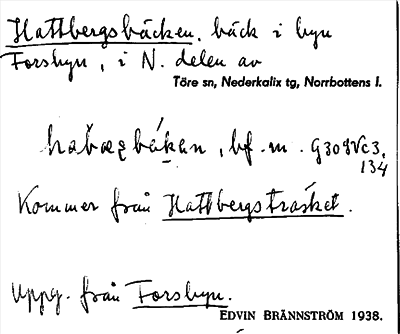 Hattbergsbäcken, bäck i byn
Forsbyn, i N. delen av
Töre sn, Nederkalix tg, Norrbottens l.
bf. m. G309Vc3,
134
Kommer från Hattbergsträsket.
Uppg. från Forsbyn.
EDVIN BRÄNNSTRÖM 1938.